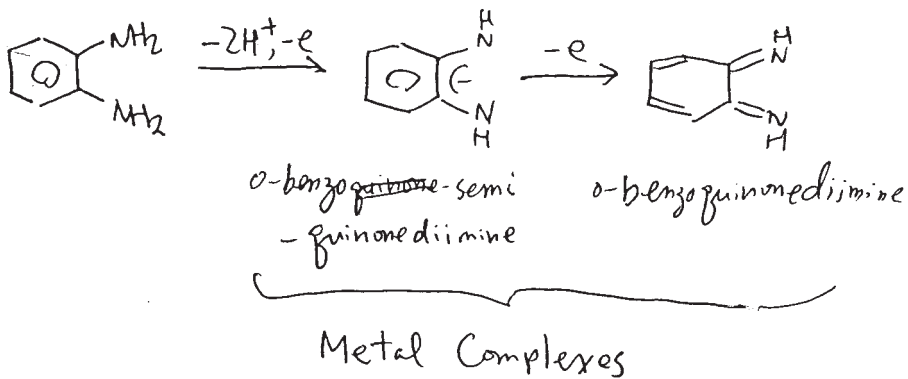 NH2
NH2
-2H+, -e
H
N
(-
N
H
-e
H
N
N
H
o-benzoquinone-semi
-quinonediimine
o-benzoquinonediimine
Metal Complexes